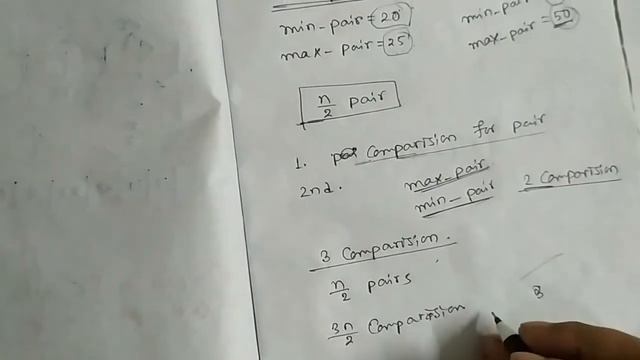 min-pair = 20
max-pair = 25
min-pair
max-pair = 50
n/2 pair
1. Comparision for pair
2nd. max-pair
min-pair 2 Comparision
3 Comparision.
n/2 pairs
3n/2 Comparision
3